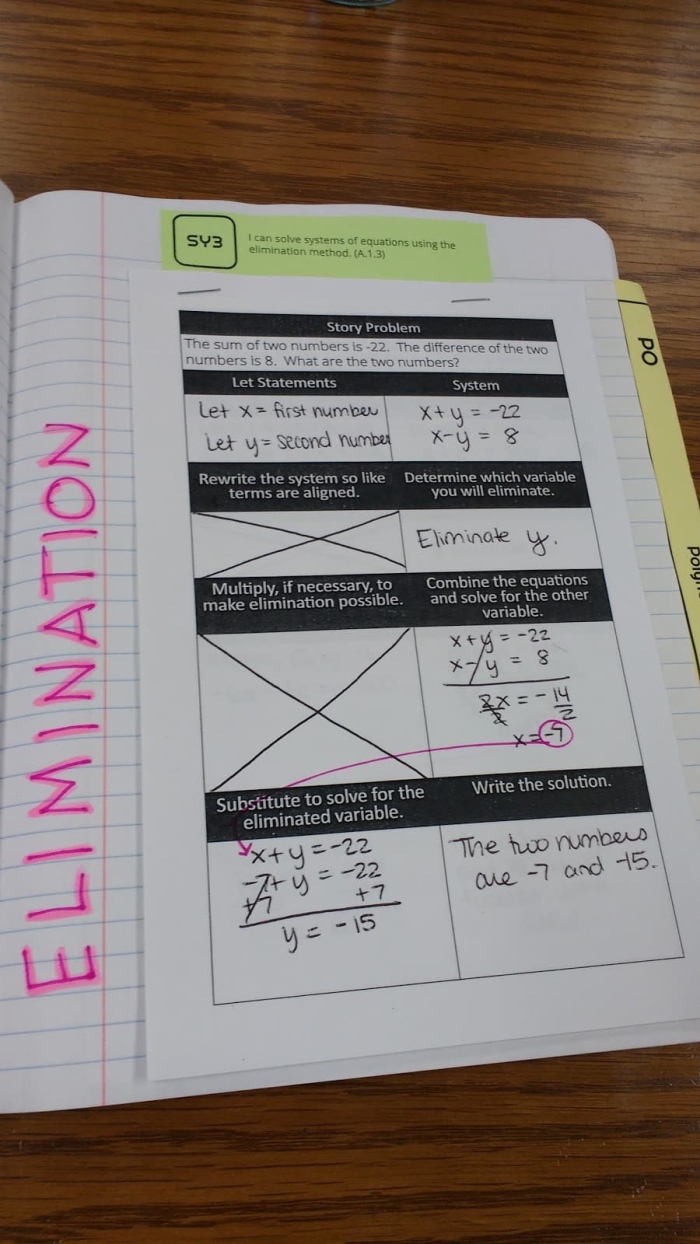 SY3
I can solve systems of equations using the
elimination method. (A.1.3)
PO
ELIMINATION
Story Problem
The sum of two numbers is -22. The difference of the two
numbers is 8. What are the two numbers?
Let Statements
Let x = first number
Let y = second number
System
x+y = -22
x-y = 8
Rewrite the system so like
terms are aligned.
Determine which variable
you will eliminate.
Eliminate y.
Multiply, if necessary, to
make elimination possible.
Combine the equations
and solve for the other
variable.
x+y = -22
x-y = 8
2x = -14
2 2
x = -7
Substitute to solve for the
eliminated variable.
x+y = -22
-7+y = -22
+7 +7
y = -15
Write the solution.
The two numbers
are -7 and -15.